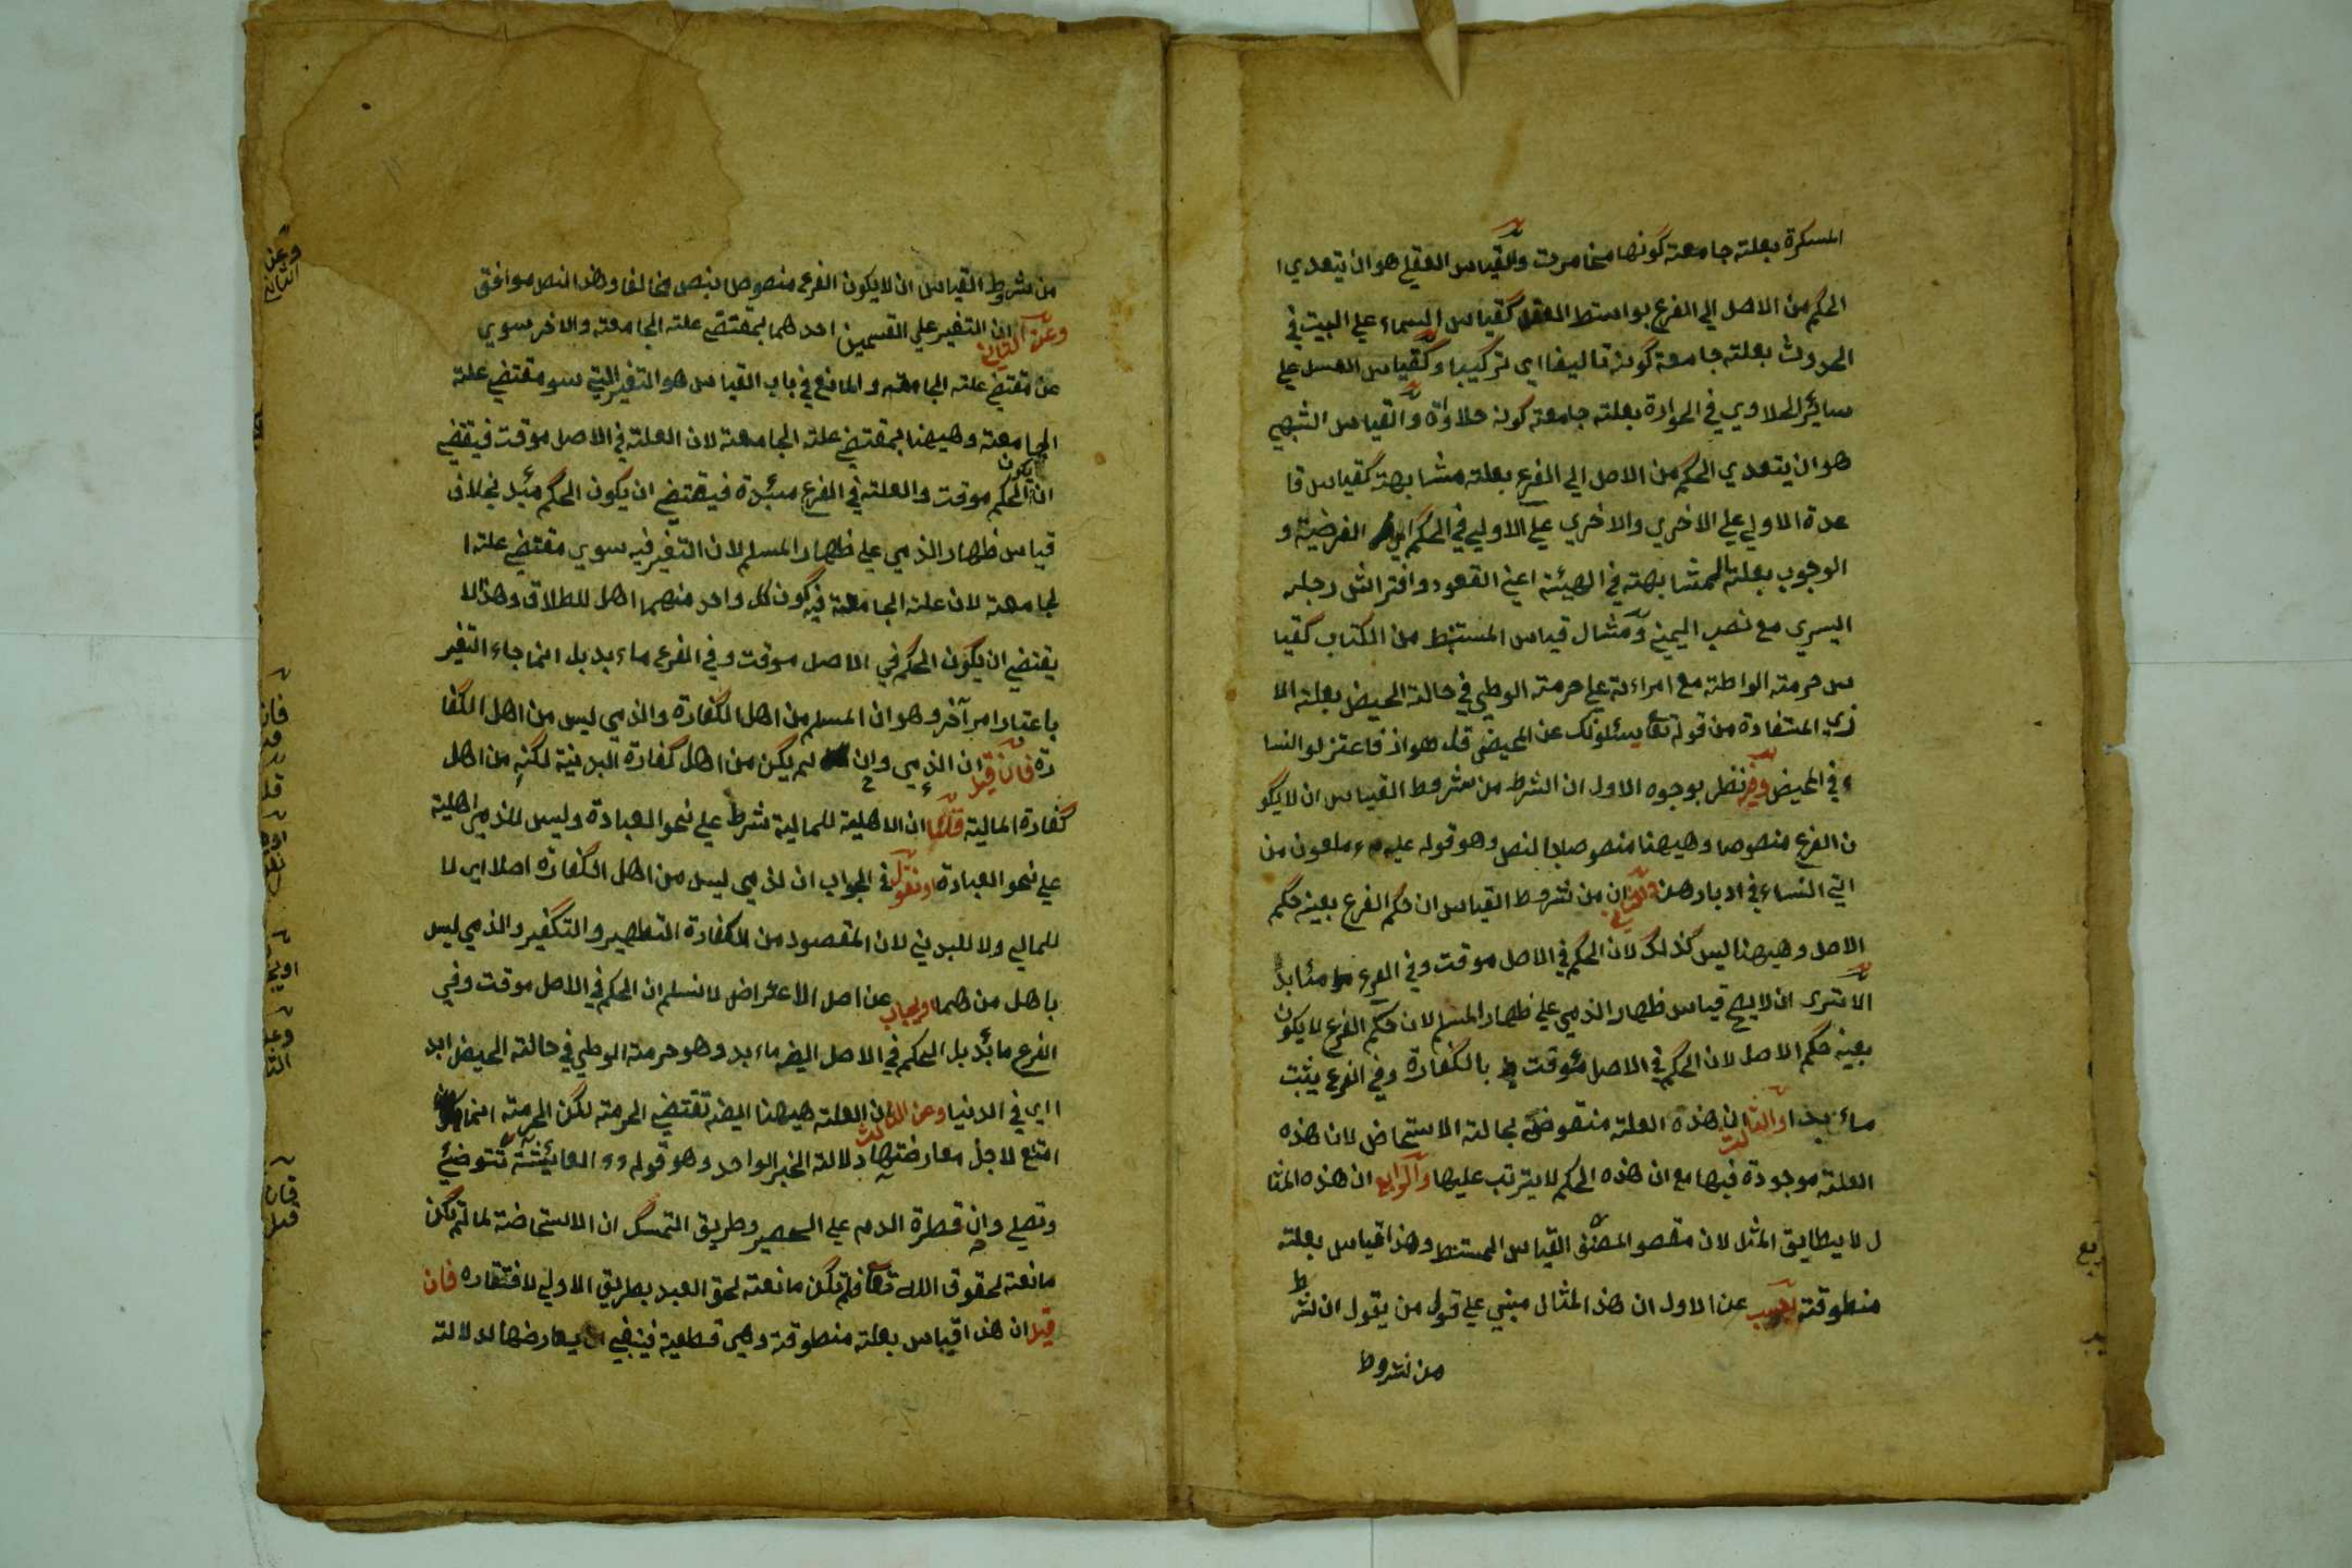 المسكرة بعلته جامعة كونها مخامرت والقياس العقلي هو ان يتعدي ا
الحكم من الاصل الي الفرع بواسطة العقل كقياس السماء علي البيت في
الحدوث بعلته جامعة كونه تاليفا اي تركيبا وكقياس العسل علي
سائر الحلاوي في الحرارة بعلته جامعة كونه حلاوة والقياس الشبهي
هو ان يتعدي الحكم من الاصل الي الفرع بعلته مشابهة كقياس قا
عدة الاولي علي الاخري والاخري علي الاولي في الحكم اي الفرضية و
الوجوب بعلته المشابهته في الهيئة اعني القعود وافتراش رجله
اليسري مع نصب اليمني ومثال قياس المستنبط من الكتاب كقيا
س حرمته الواطة مع امراءته علي حرمته الوطي في حالة الحيض بعلته الا
ذي المستفادة من قوله تعا يسئلونك عن المحيض قل هو اذ فاعتزلوا النسا
ء في المحيض وفيه نظر بوجوه الاول ان الشرط من شروط القياس ان لا يكو
ن الفرع منصوصا وهيهنا منصوصا بالنص وهو قوله عليه ملعون من
اتي النساء في ادبارهن والثاني ان من شروط القياس ان حكم الفرع بعينه حكم
الاصل وهيهنا ليس كذلك لان الحكم في الاصل موقت وفي الفرع مئابد
الا تري ان لا يصح قياس ظهار الذمي علي ظهار المسلم لان حكم الفرع لا يكون
بعينه حكم الاصل لان الحكم في الاصل مئوقت بالكفارة وفي الفرع يثبت
ماءبدا والثالث ان هذه العلته منقوضة بحالته الاستحاض لان هذه
العلته موجودة فيها مع ان هذه الحكم لا يترتب عليها والرابع ان هذه المثا
ل لا يطابق المثل لان مقصو المصنف القياس المستنبط وهذا قياس بعلته
منطوقته يجيب عن الاول ان هذا المثال مبني علي قول من يقول ان لشرط
من شروط
من شروط القياس ان لا يكون الفرع منصوصا بنص مخالفا وهذا النص موافق
وعن الثاني ان التغير علي القسمين احدهما بمقتضي علته الجامعة والاخر سوي
عن مقتضي علته الجامعته والمانع في باب القياس هو التغير التي سو مقتضي علته
الجامعته وهيهنا بمقتضي علته الجامعة لان العلته في الاصل موقت فيقتضي
ان يكون الحكم موقت والعلته في الفرع مئبدة فيقتضي ان يكون الحكم مئبد بخلاف
قياس ظهار الذمي علي ظهار المسلم لان التغير فيه سوي مقتضي علته ا
لجامعة لان علته الجامعة فيه كون كل واحد منهما اهل للطلاق وهذا لا
يقتضي ان يكون الحكم في الاصل موقت وفي الفرع ماءبد بل انما جاء التغير
باعتبار امر آخر وهو ان المسلم من اهل الكفارة والذمي ليس من اهل الكفا
رة فان قيل ان الذمي وان لم يكن من اهل كفارة البدنية لكنه من اهل
كفارة المالية قلنا ان الاهلية للمالية شرط علي نحو العبادة وليس للذمي اهلية
علي نحو العبادة او نقول في الجواب ان لذمي ليس من اهل الكفارة اصلا اي لا
للمالي ولا للبدني لان المقصود من الكفارة التطهير والتكفير والذمي ليس
باهل من هما او يجاب عن اصل الاعتراض لا نسلم ان الحكم في الاصل موقت وفي
الفرع مابد بل الحكم في الاصل ايضه ماءبد وهو حرمته الوطي في حالته الحيض ابد
ا اي في الدنيا وعن الثالث ان العلته هيهنا ايضه تقتضي الحرمته لكن الحرمته انما
امتنع لاجل معارضتها دلالة الخبر الواحد وهو قوله المعائشة تتوضئ
وتصلي وان قطرة الدم علي الحصير وطريق التمسك ان الاستحاضة لما لم تكن
مانعته لحقوق الله تعا فلم تكن مانعته لحق العبد بطريق الاولي لافتقاره فان
قيل ان هذا قياس بعلته منطوقة وهي قطعية فينبغي ان يعارضها لدلالته
وعن
الثاني
فان